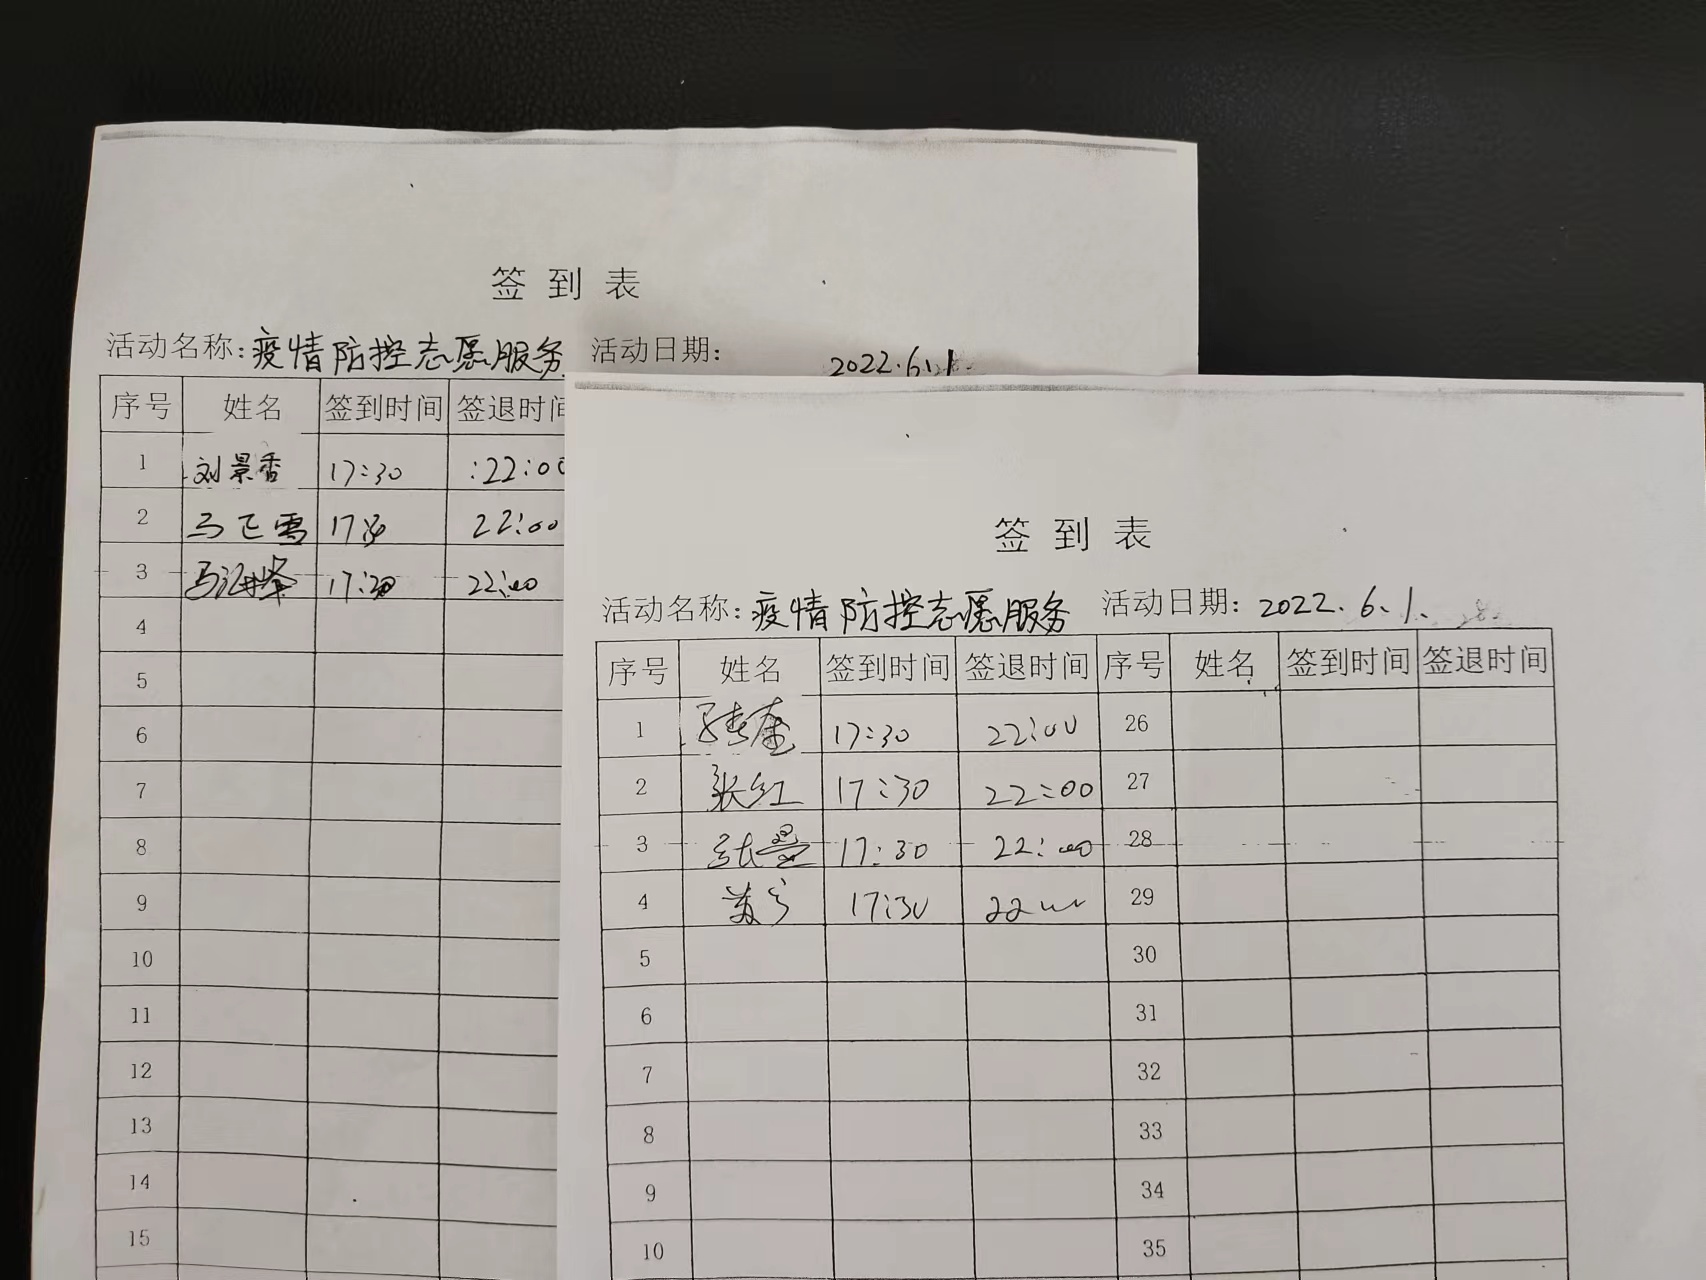 签到表
活动名称:疫情防控志愿服务 活动日期: 2022.6.1
序号 姓名 签到时间 签退时间
1 刘景香 17:30 :22:00
2 马飞雪 17:30 22:00
3 17:30 22:00
4
5
6
7
8
9
10
11
12
13
14
15
签到表
活动名称:疫情防控志愿服务 活动日期: 2022.6.1.
序号 姓名 签到时间 签退时间 序号 姓名 签到时间 签退时间
1 17:30 22:00 26
2 张红 17:30 22:00 27
3 张曼 17:30 22:00 28
4 17:30 22 29
5 30
6 31
7 32
8 33
9 34
10 35